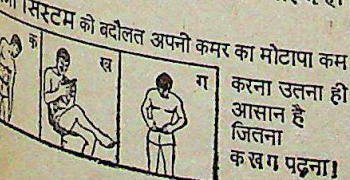 सिस्टम की बदौलत अपनी कमर का मोटापा कम
क
ख
ग
करना उतना ही
आसान है
जितना
क ख ग पढ़ना!